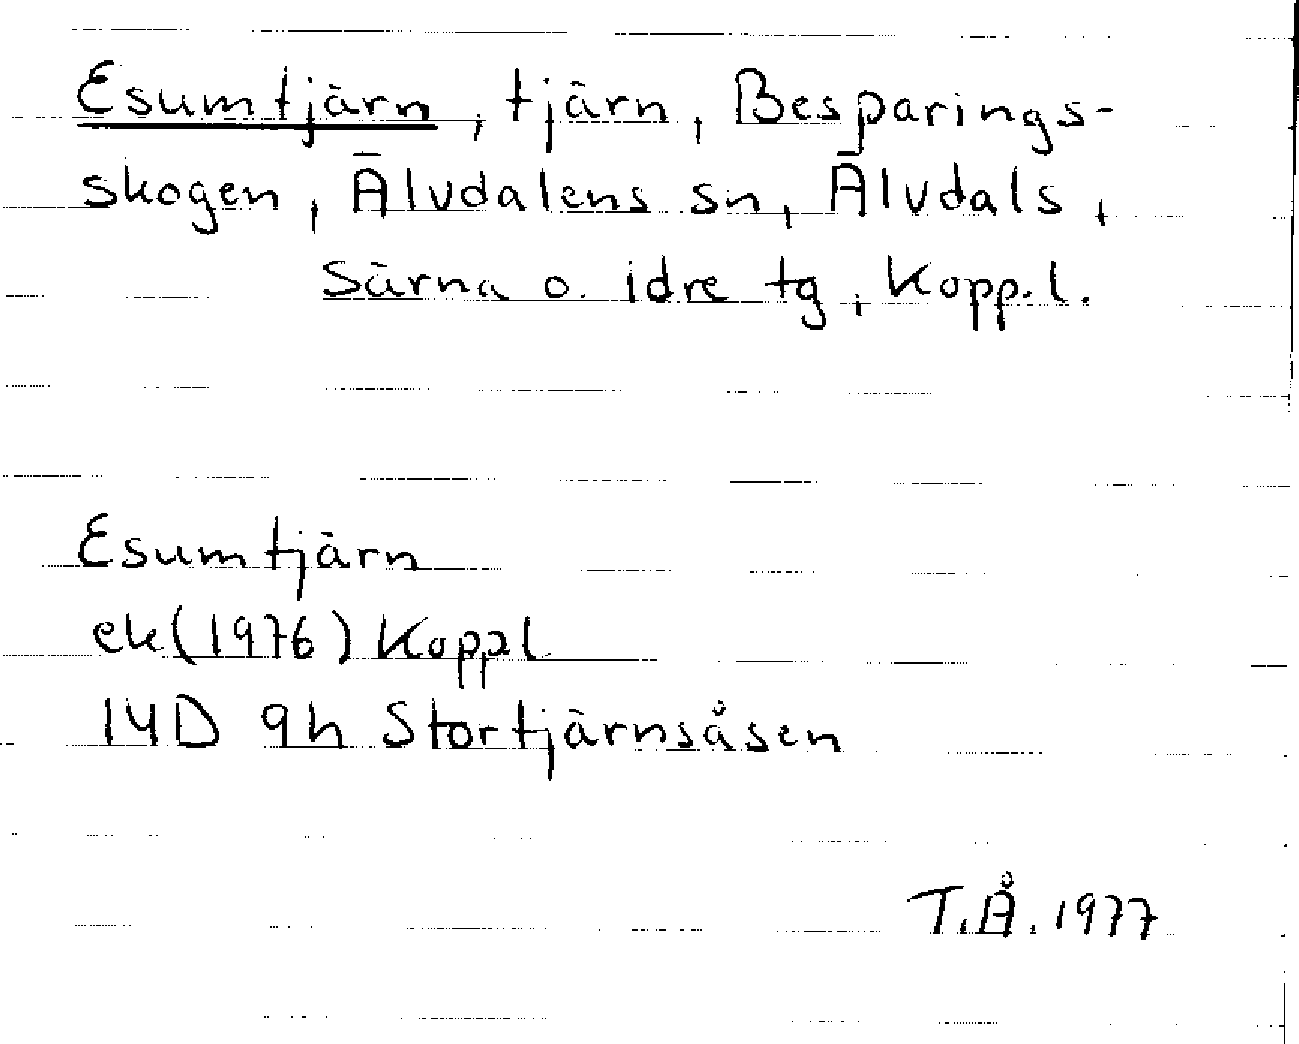 Esumtjärn, tjärn, Besparings-
skogen, Älvdalens sn, Älvdals,
Särna o. idre tg, Kopp.l.
Esumtjärn
ek(1976) Koppl
14D 9h Stortjärnsåsen
T.Å. 1977